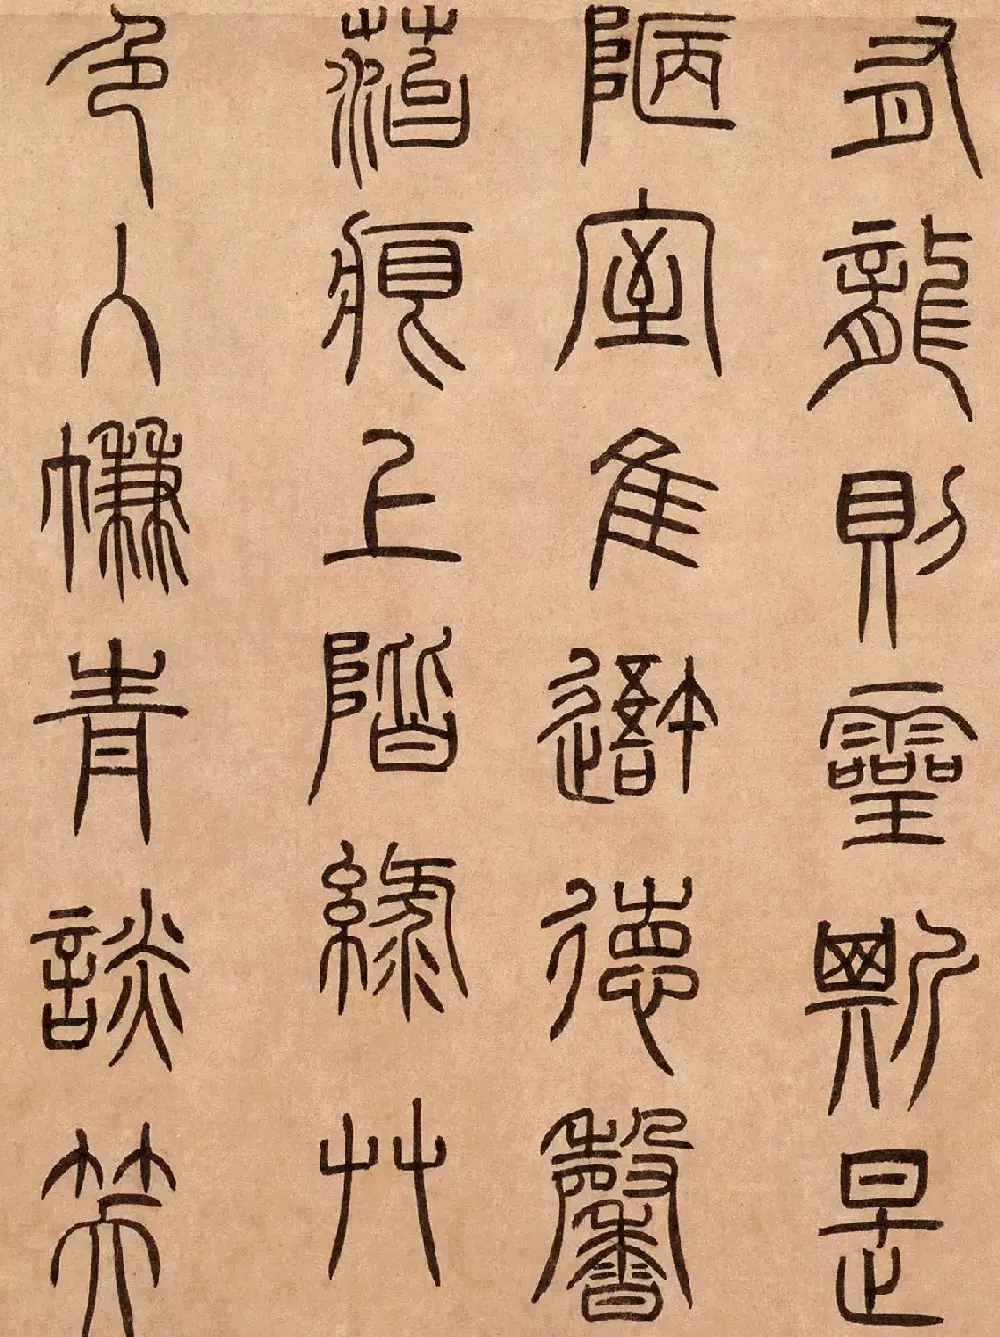 有龍則靈斯是
陋室隹吾德馨
菭痕上階綠艸
色入㡘青談笑